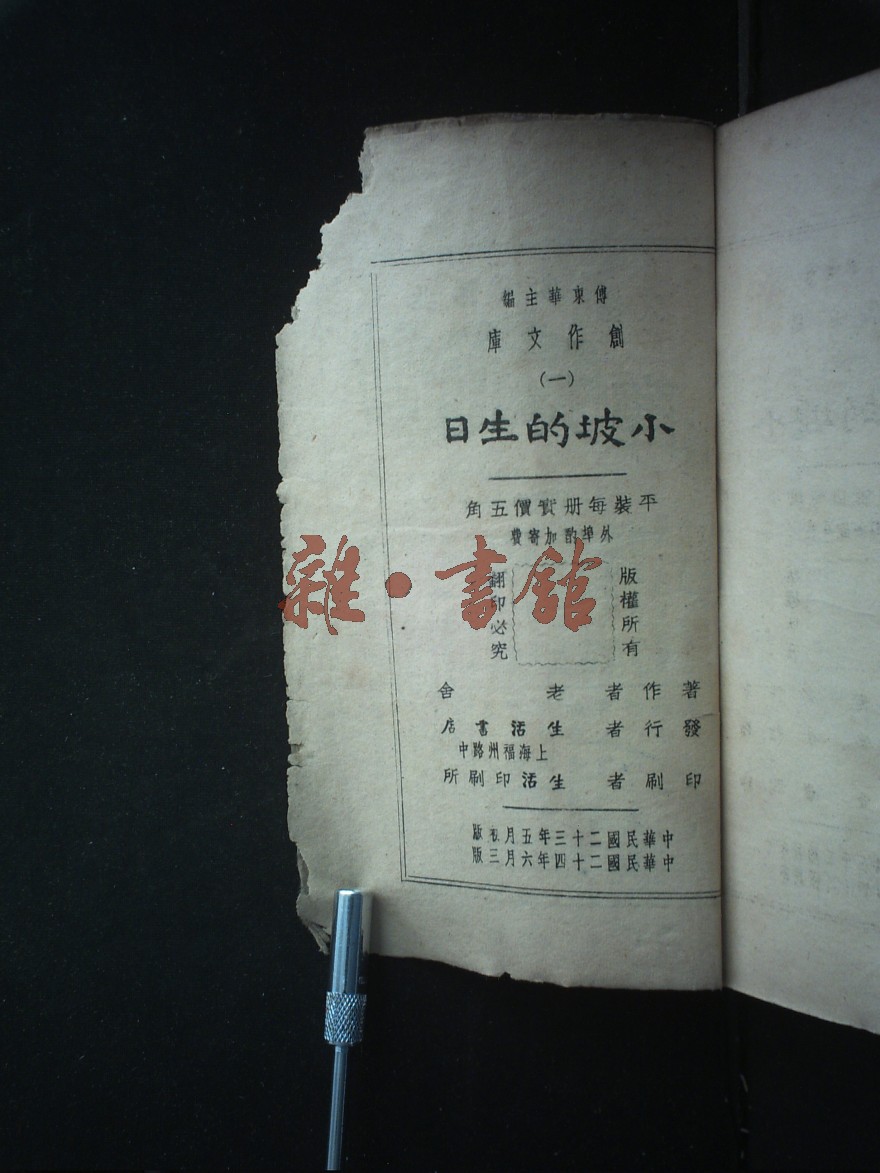 傅東華主編
創作文庫
（一）
小坡的生日
平裝每册實價五角
外埠酌加寄費
版權所有
翻印必究
著作者 老舍
發行者 生活書店
上海福州路中
印刷者 生活印刷所
中華民國二十三年五月初版
中華民國二十四年六月三版
雜·書館